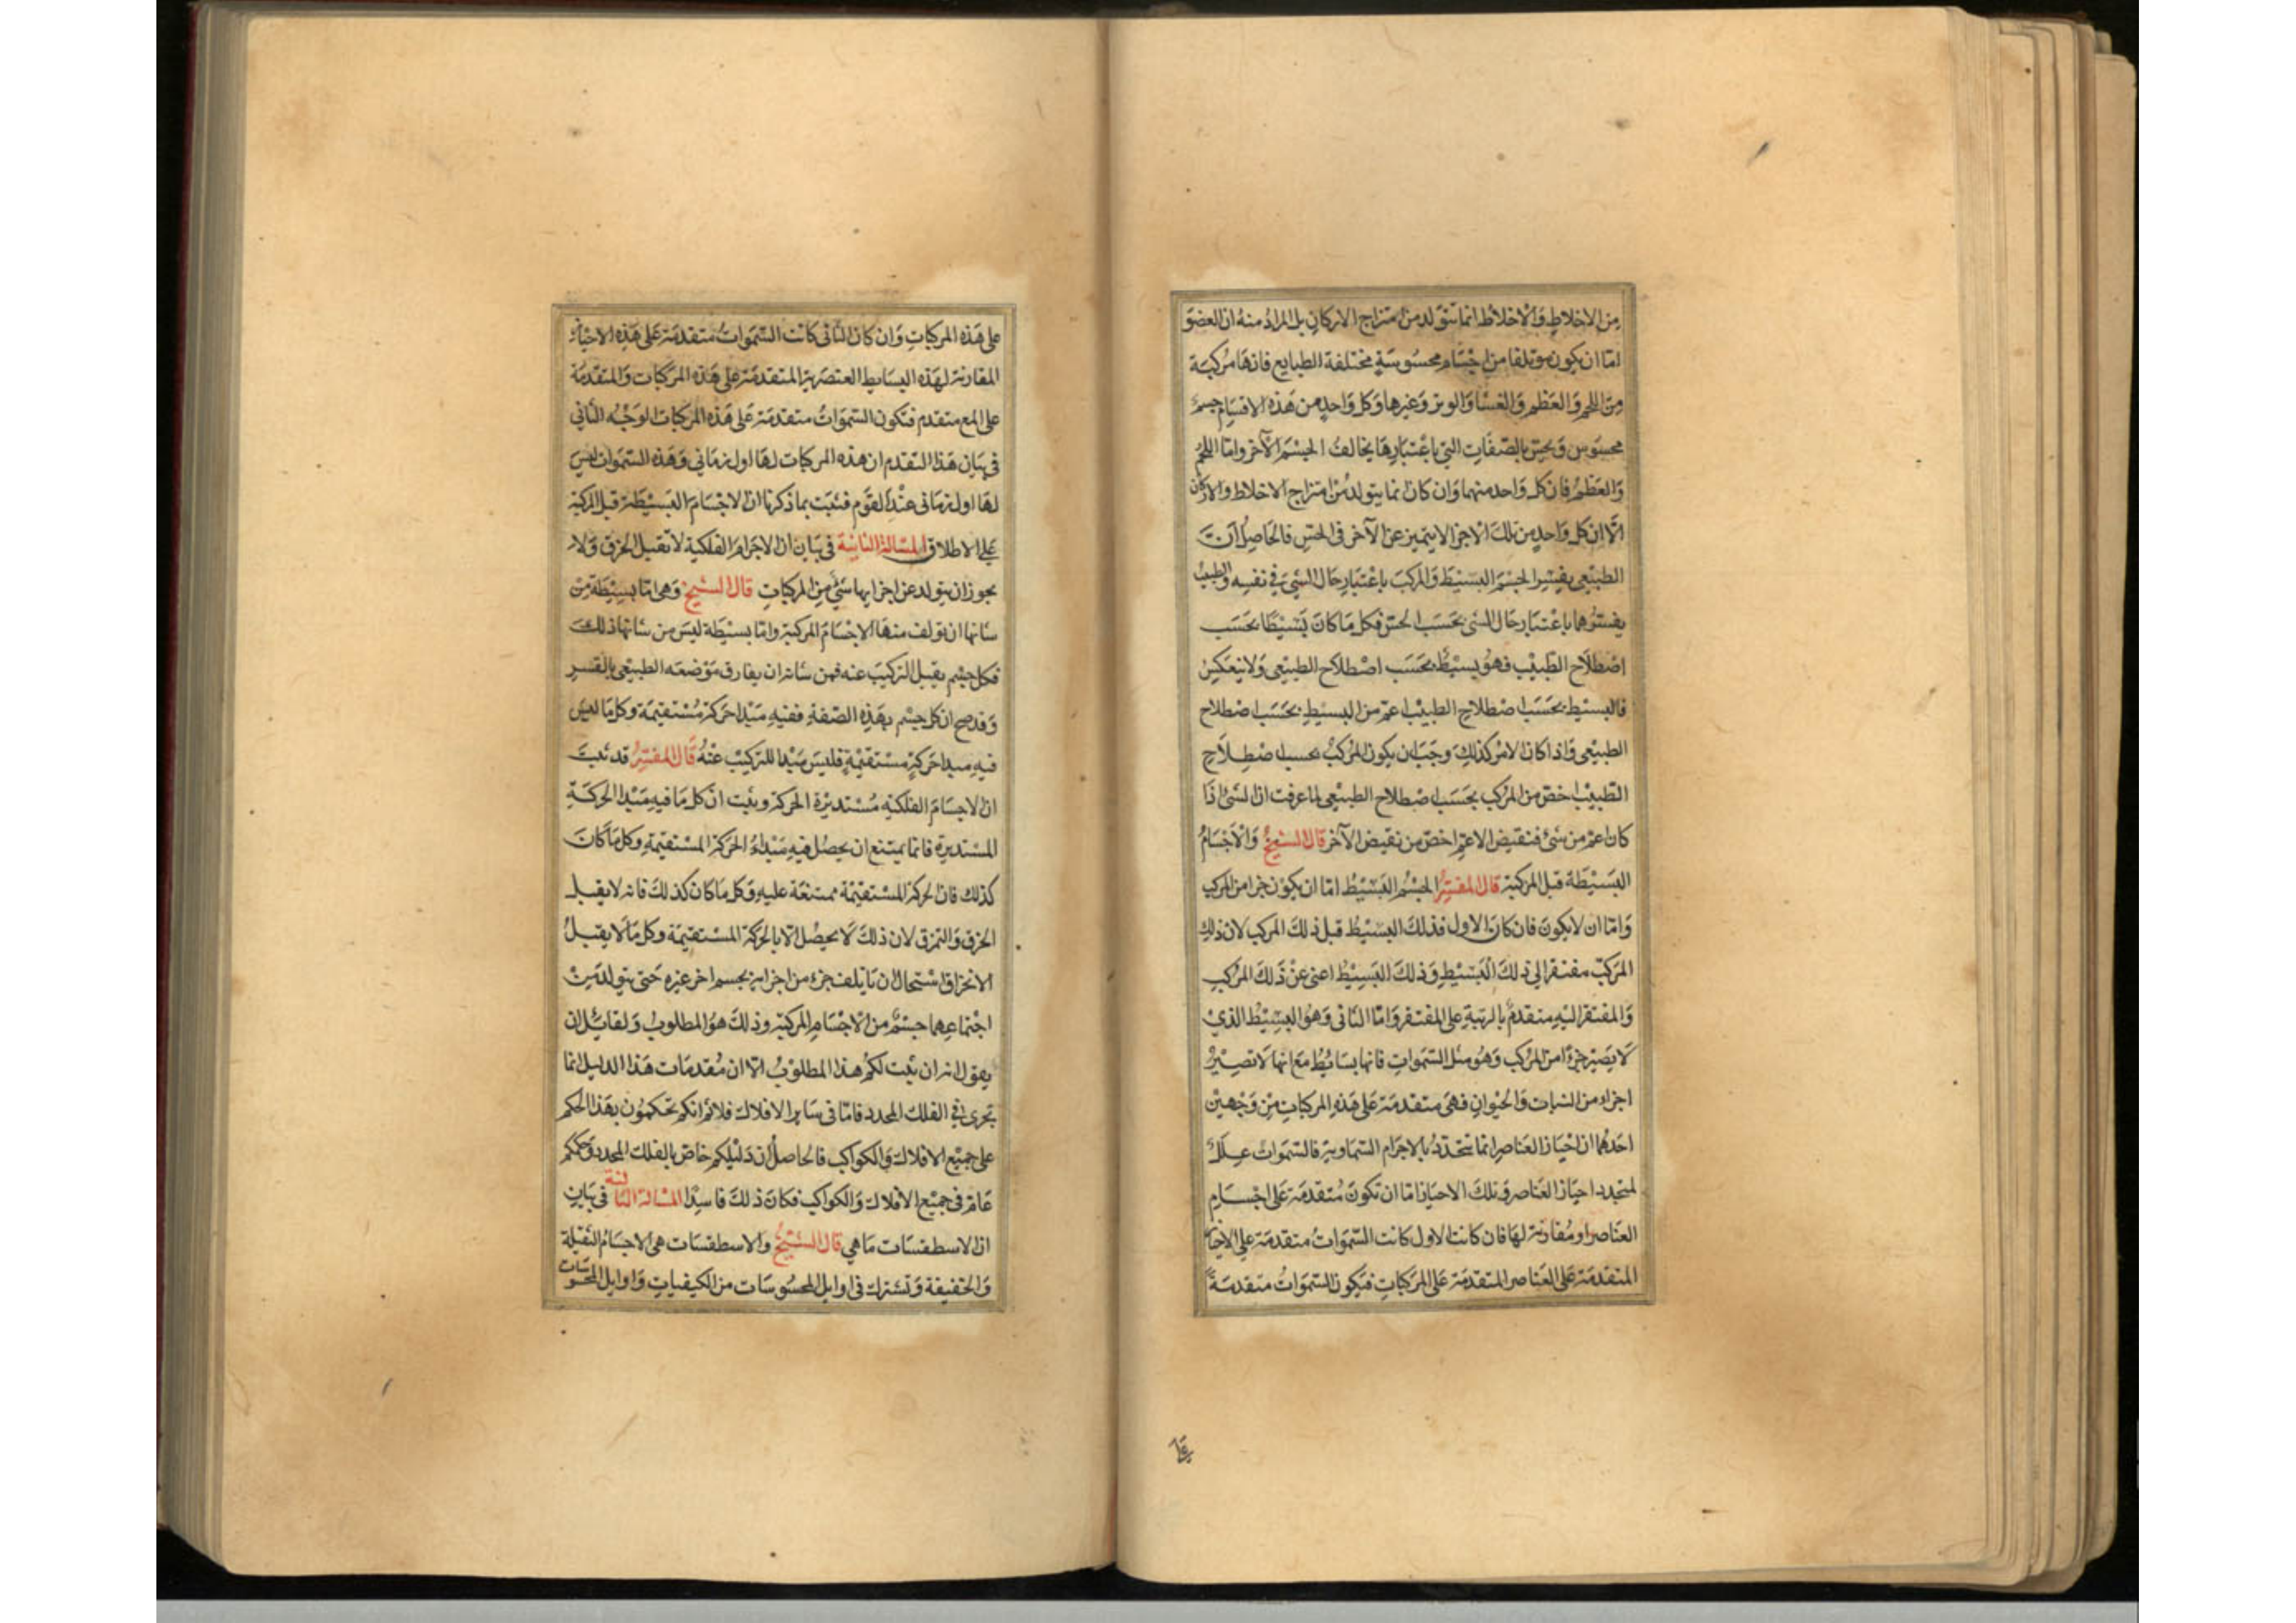 من الاخلاط والاخلاط انما تتولد من امتزاج الاركان بل المراد منه ان العضو
اما ان يكون مؤتلفا من اجسام محسوسة مختلفة الطبايع فانها مركبة
من اللحم والعظم والغشا والوتر وغيرها وكل واحد من هذه الاقسام جسم
محسوس ويحس بالصفات التي باعتبارها يخالف الجسم الآخر واما اللحم
والعظم فان كل واحد منهما وان كان انما يتولد من امتزاج الاخلاط والاركان
الا ان كل واحد من تلك الاجزا لا يتميز عن الآخر في الحس فالحاصل ان
الطبيعي يفسر الجسم البسيط والمركب باعتبار حال الشي في نفسه والطبيب
يفسرهما باعتبار حال الشي بحسب الحس فكل ما كان بسيطا بحسب
اصطلاح الطبيب فهو بسيط بحسب اصطلاح الطبيعي ولا ينعكس
فالبسيط بحسب اصطلاح الطبيب اعم من البسيط بحسب اصطلاح
الطبيعي واذا كان الامر كذلك وجب ان يكون المركب بحسب اصطلاح
الطبيب اخص من المركب بحسب اصطلاح الطبيعي لما عرفت ان الشئ اذا
كان اعم من شئ فنقيض الاعم اخص من نقيض الآخر قال الشيخ والاجسام
البسيطة قبل المركبة قال المفسر الجسم البسيط اما ان يكون جزا من المركب
واما ان لا يكون فان كان الاول فذلك البسيط قبل ذلك المركب لان ذلك
المركب مفتقر الى ذلك البسيط وذلك البسيط اغنى عن ذلك المركب
والمفتقر اليه متقدم بالرتبة على المفتقر واما الثاني وهو البسيط الذي
لا يصير جزءا من المركب وهو مثل السموات فانها بسايط مع انها لا تصير
اجزاء من النبات والحيوان فهي متقدمة على هذه المركبات من وجهين
احدهما ان احياز العناصر انما تتحدد بالاجرام السماوية فالسموات علل
لتحدد احياز العناصر وتلك الاحياز اما ان تكون متقدمة على اجسام
العناصر او مقارنة لها فان كانت الاول كانت السموات متقدمة على الاحياز
المتقدمة على العناصر المتقدمة على المركبات فتكون السموات متقدمة
على هذه المركبات وان كان الثاني كانت السموات متقدمة على هذه الاحياز
المقارنة لهذه البسايط العنصرية المتقدمة على هذه المركبات والمتقدمة
على المع متقدم فتكون السموات متقدمة على هذه المركبات الوجه الثاني
في بيان هذا التقدم ان هذه المركبات لها اول زماني وهذه السموات ليس
لها اول زماني عند القوم فثبت بما ذكرنا ان الاجسام البسيطة قبل المركبة
على الاطلاق المسألة الثانية في بيان ان الاجرام الفلكية لا تقبل الخرق ولا
يجوز ان يتولد عن اجزايها شئ من المركبات قال الشيخ وهي اما بسيطة من
شانها ان تولف منها الاجسام المركبة واما بسيطة ليس من شانها ذلك
فكل جسم يقبل التركيب عنه فمن شانه ان يفارق موضعه الطبيعي بالقسر
وقد صح ان كل جسم بهذه الصفة ففيه مبدا حركة مستقيمة وكل ما ليس
فيه مبدا حركة مستقيمة فليس مبدا للتركيب عنه قال المفسر قد ثبت
ان الاجسام الفلكية مستديرة الحركة وثبت ان كل ما فيه مبدا الحركة
المستديرة فانما يمتنع ان يحصل فيه مبداء الحركة المستقيمة وكل ما كان
كذلك فان الحركة المستقيمة ممتنعة عليه وكل ما كان كذلك فانه لا يقبل
الخرق والتمزق لان ذلك لا يحصل الا بالحركة المستقيمة وكل ما لا يقبل
الانخراق استحال ان يأتلف جزء من اجزايه بجسم اخر غيره حتى يتولد من
اجتماعهما جسم من الاجسام المركبة وذلك هو المطلوب ولقائل ان
يقول انه ان ثبت لكم هذا المطلوب الا ان مقدمات هذا الدليل انما
تجرى في الفلك المحدد فاما في ساير الافلاك فلا ثم انكم تحكمون بهذا الحكم
على جميع الافلاك والكواكب فالحاصل ان دليلكم خاص بالفلك المحدد وحكمكم
عام في جميع الافلاك والكواكب فكان ذلك فاسدا المسالة الثالثة في بيان
ان الاسطقسات ما هي قال الشيخ والاسطقسات هي الاجسام الثقيلة
والخفيفة وتشترك في اوايل المحسوسات من الكيفيات واوايل المحسوسات